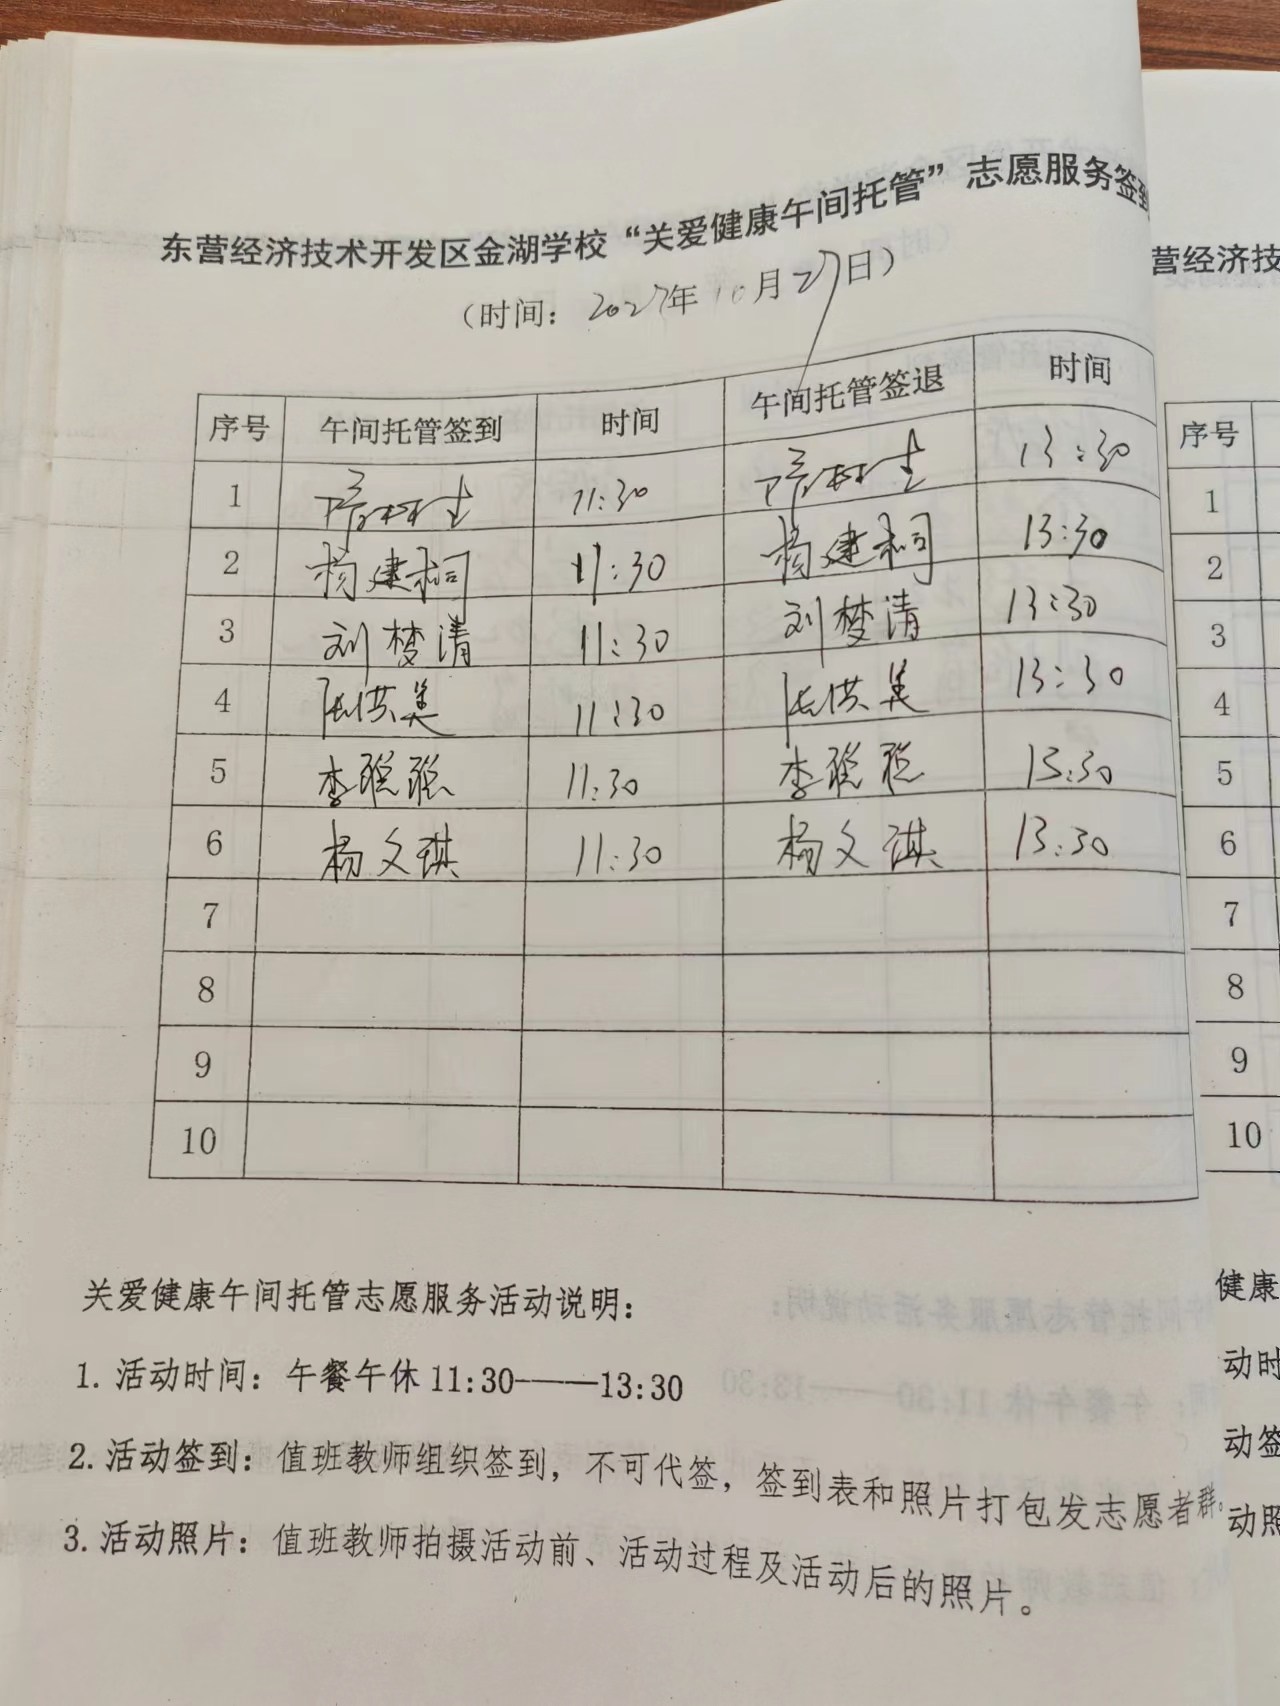 东营经济技术开发区金湖学校“关爱健康午间托管”志愿服务签到
（时间：2027年10月27日）
序号 午间托管签到 时间 午间托管签退 时间
1 11:30 13:30
2 杨建桐 11:30 杨建桐 13:30
3 刘梦清 11:30 刘梦清 13:30
4 张洪美 11:30 张洪美 13:30
5 李聪聪 11:30 李聪聪 13:30
6 杨文琪 11:30 杨文琪 13:30
7
8
9
10
关爱健康午间托管志愿服务活动说明：
1. 活动时间：午餐午休 11:30——13:30
2. 活动签到：值班教师组织签到，不可代签，签到表和照片打包发志愿者群。
3. 活动照片：值班教师拍摄活动前、活动过程及活动后的照片。
营经济技
序号
1
2
3
4
5
6
7
8
9
10
健康
动时
动签
动照